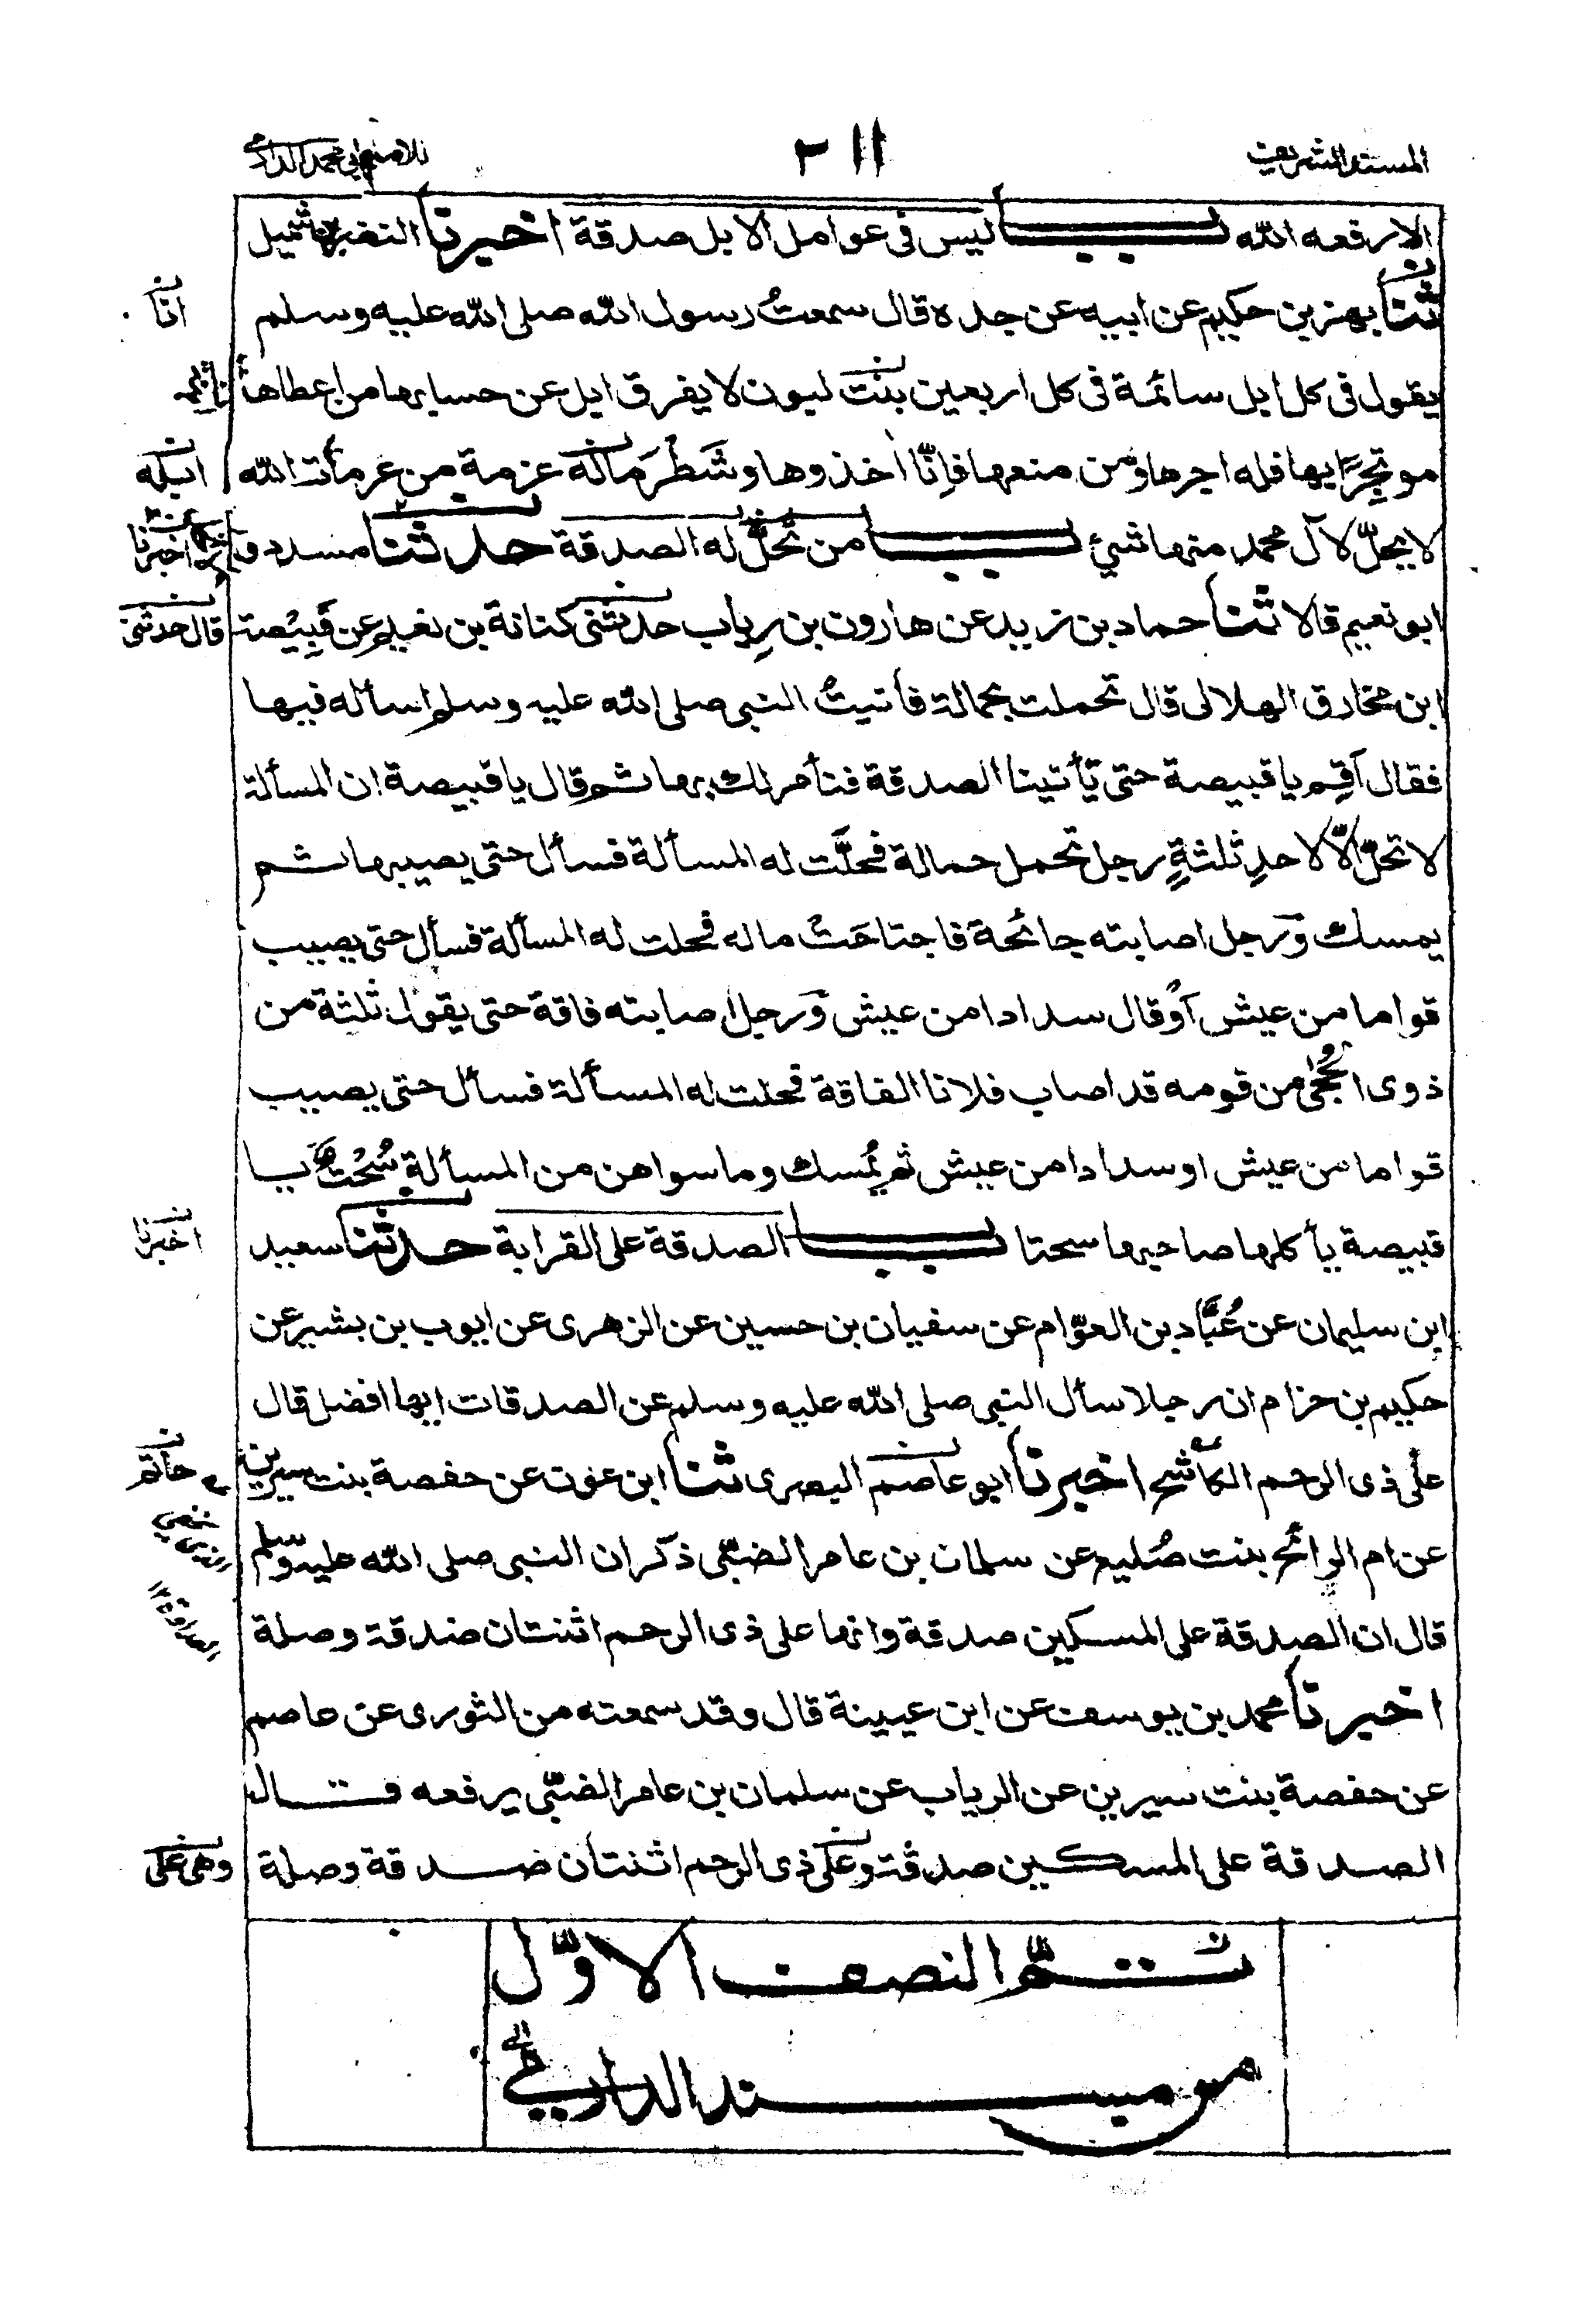 المسند الشريف
٢١١
للامام ابى محمد الدارمى
الا رفعه الله باب ليس فى عوامل الابل صدقة اخبرنا النضر بن شميل
ثنا بهز بن حكيم عن ابيه عن جده قال سمعتُ رسول الله صلى الله عليه وسلم
انا
يقول فى كل ابل سائمة فى كل اربعين بنت لبون لا يفرق ابل عن حسابها من اعطاها
موتجرًا بها فله اجرها ومن منعها فانّا اخذوها وشَطْرَ ماله عزمة من عزمات الله
ابله
لا يحلّ لآل محمد منها شئ باب من تحلّ له الصدقة حدثنا مسدد و
اخبرنا
ابو نعيم قالا ثنا حماد بن زيد عن هارون بن رِياب حدثنى كنانة بن نعيم عن قَبِيْصة
قال حدثنى
ابن مخارق الهلالى قال تحملت بحمالة فأتيتُ النبى صلى الله عليه وسلم اسأله فيها
فقال اَقِم يا قبيصة حتى تأتينا الصدقة فنأمر لك بها ثم قال يا قبيصة ان المسألة
لا تحلّ الّا لاحدِ ثلثةٍ رجل تحمل حمالة فحلَّت له المسألة فسأل حتى يصيبها ثم
يمسك وَرجل اصابته جائحة فاجتاحَتْ ماله فحلت له المسألة فسأل حتى يصيب
قواما من عيش اَوْ قال سدادا من عيش وَرجل اصابته فاقة حتى يقول ثلثة من
ذوى الحِجٰى من قومه قد اصاب فلانا الفاقة فحلت له المسألة فسأل حتى يصيب
قواما من عيش او سدادا من عيش ثم يُمسك وما سواهن من المسألة سُحْت يا
قبيصة يأكلها صاحبها سحتا باب الصدقة على القرابة حدثنا سعيد
اخبرنا
ابن سليمان عن عُبَّاد بن العوّام عن سفيان بن حسين عن الزهرى عن ايوب بن بشير عن
حكيم بن حزام ان رجلا سأل النبى صلى الله عليه وسلم عن الصدقات ايها افضل قال
على ذى الرحم الكاشح اخبرنا ابو عاصم البصرى ثنا ابن عون عن حفصة بنت سيرين
حاتم
عن ام الرائح بنت صُليع عن سلمان بن عامر الضبّى ذكر ان النبى صلى الله عليه وسلم
قال ان الصدقة على المسكين صدقة وانها على ذى الرحم اثنتان صدقة وصلة
اخبرنا محمد بن يوسف عن ابن عيينة قال وقد سمعته من الثورى عن عاصم
عن حفصة بنت سيرين عن الرباب عن سلمان بن عامر الضبّى يرفعه قال
الصدقة على المسكين صدقة وعلى ذى الرحم اثنتان صدقة وصلة
وهى على
تم النصف الاوّل
من مسند الدارمى